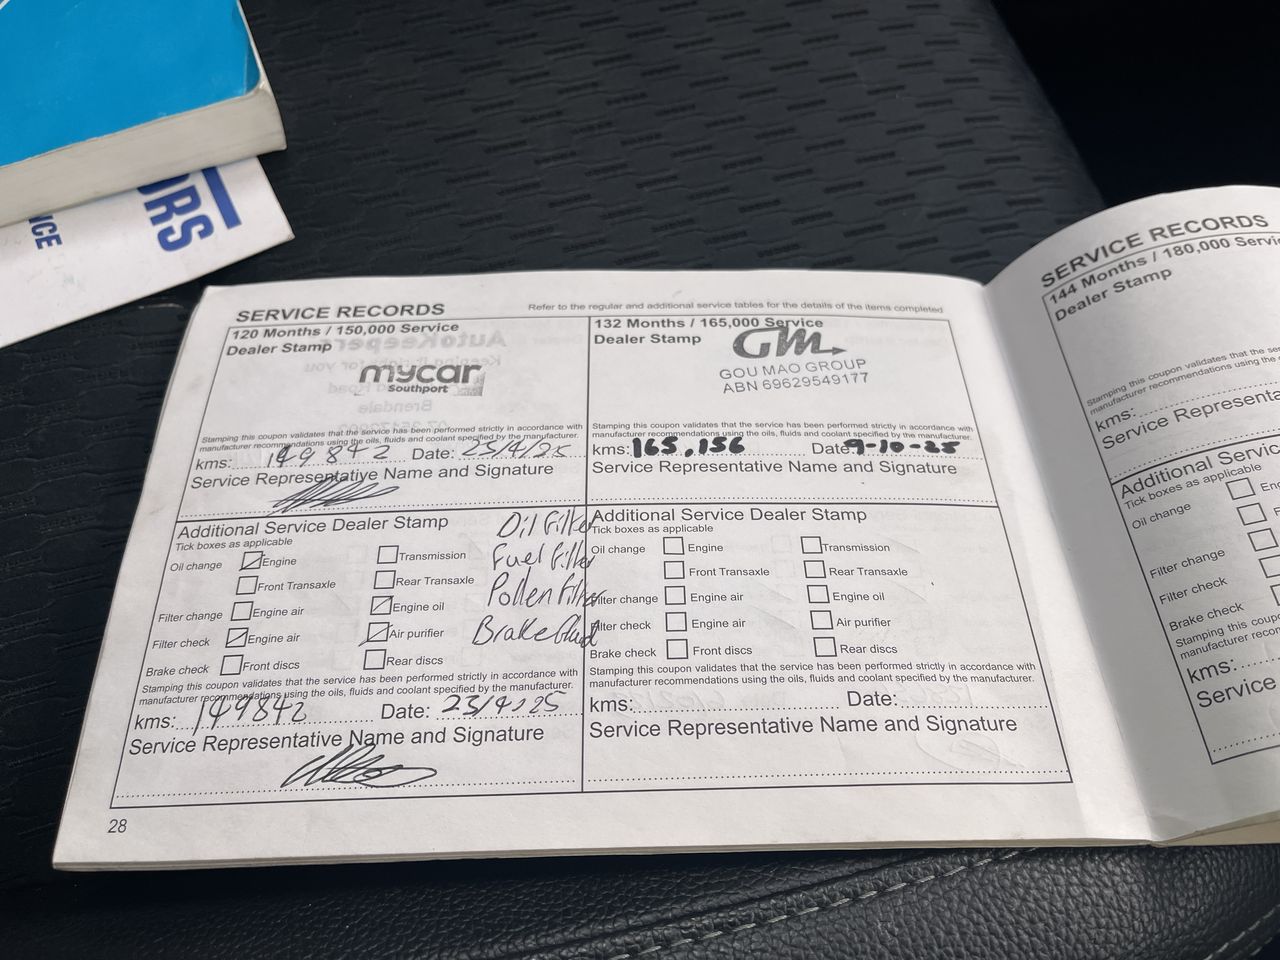 ORS
NCE
SERVICE RECORDS
Refer to the regular and additional service tables for the details of the items completed
120 Months / 150,000 Service
Dealer Stamp
mycar
Southport
Stamping this coupon validates that the service has been performed strictly in accordance with
manufacturer recommendations using the oils, fluids and coolant specified by the manufacturer.
kms: 149842 Date: 23/4/25
Service Representative Name and Signature
Additional Service Dealer Stamp
Tick boxes as applicable
Oil change Engine Transmission
Front Transaxle Rear Transaxle
Filter change Engine air Engine oil
Filter check Engine air Air purifier
Brake check Front discs Rear discs
Oil Filter
Fuel Filter
Pollen Filter
Brake Fluid
Stamping this coupon validates that the service has been performed strictly in accordance with
manufacturer recommendations using the oils, fluids and coolant specified by the manufacturer.
kms: 149842 Date: 23/4/25
Service Representative Name and Signature
28
132 Months / 165,000 Service
Dealer Stamp
GM
GOU MAO GROUP
ABN 69629549177
Stamping this coupon validates that the service has been performed strictly in accordance with
manufacturer recommendations using the oils, fluids and coolant specified by the manufacturer.
kms: 165,156 Date: 9-10-25
Service Representative Name and Signature
Additional Service Dealer Stamp
Tick boxes as applicable
Oil change Engine Transmission
Front Transaxle Rear Transaxle
Filter change Engine air Engine oil
Filter check Engine air Air purifier
Brake check Front discs Rear discs
Stamping this coupon validates that the service has been performed strictly in accordance with
manufacturer recommendations using the oils, fluids and coolant specified by the manufacturer.
kms: Date:
Service Representative Name and Signature
SERVICE RECORDS
144 Months / 180,000 Servic
Dealer Stamp
Stamping this coupon validates that the se
manufacturer recommendations using the
kms:
Service Representa
Additional Servic
Tick boxes as applicable
Oil change Eng
F
Filter change
Filter check
Brake check
Stamping this coupon val
manufacturer recommen
kms:
Service